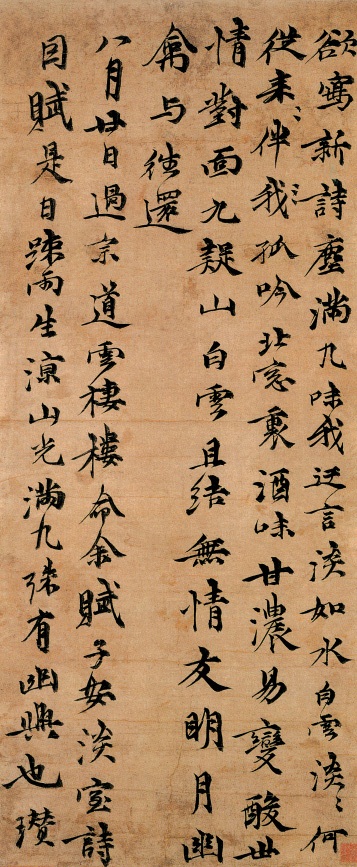 欲寫新詩塵滿几味我迂言淡如水白雲淡〻何
從來伴我孤吟北窓裏酒味甘濃易變酸世
情對面九疑山白雲且結無情友明月幽
禽与往還
八月廿日過宗道雲棲樓命余賦子安淡室詩
因賦是日踈雨生涼山光滿几殊有幽興也瓚